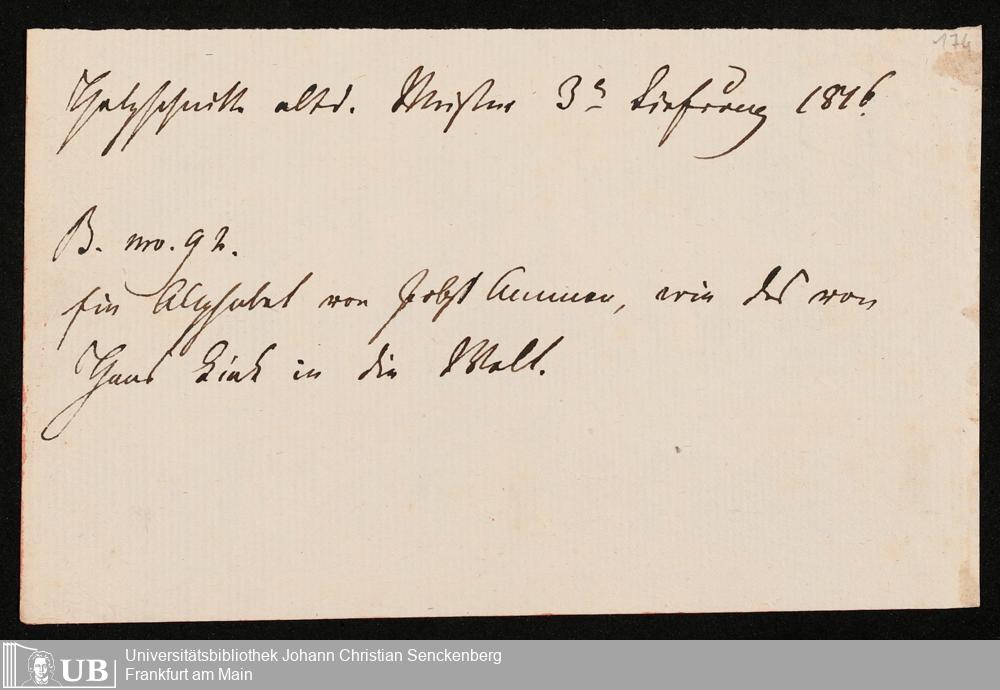 174
Holzschnitte altd. Meister 3e Lieferung 1816.
B. no. 92.
Ein Alphabet von Jobst Ammon, wie das von
Hans in die Welt.
UB
Universitätsbibliothek Johann Christian Senckenberg
Frankfurt am Main